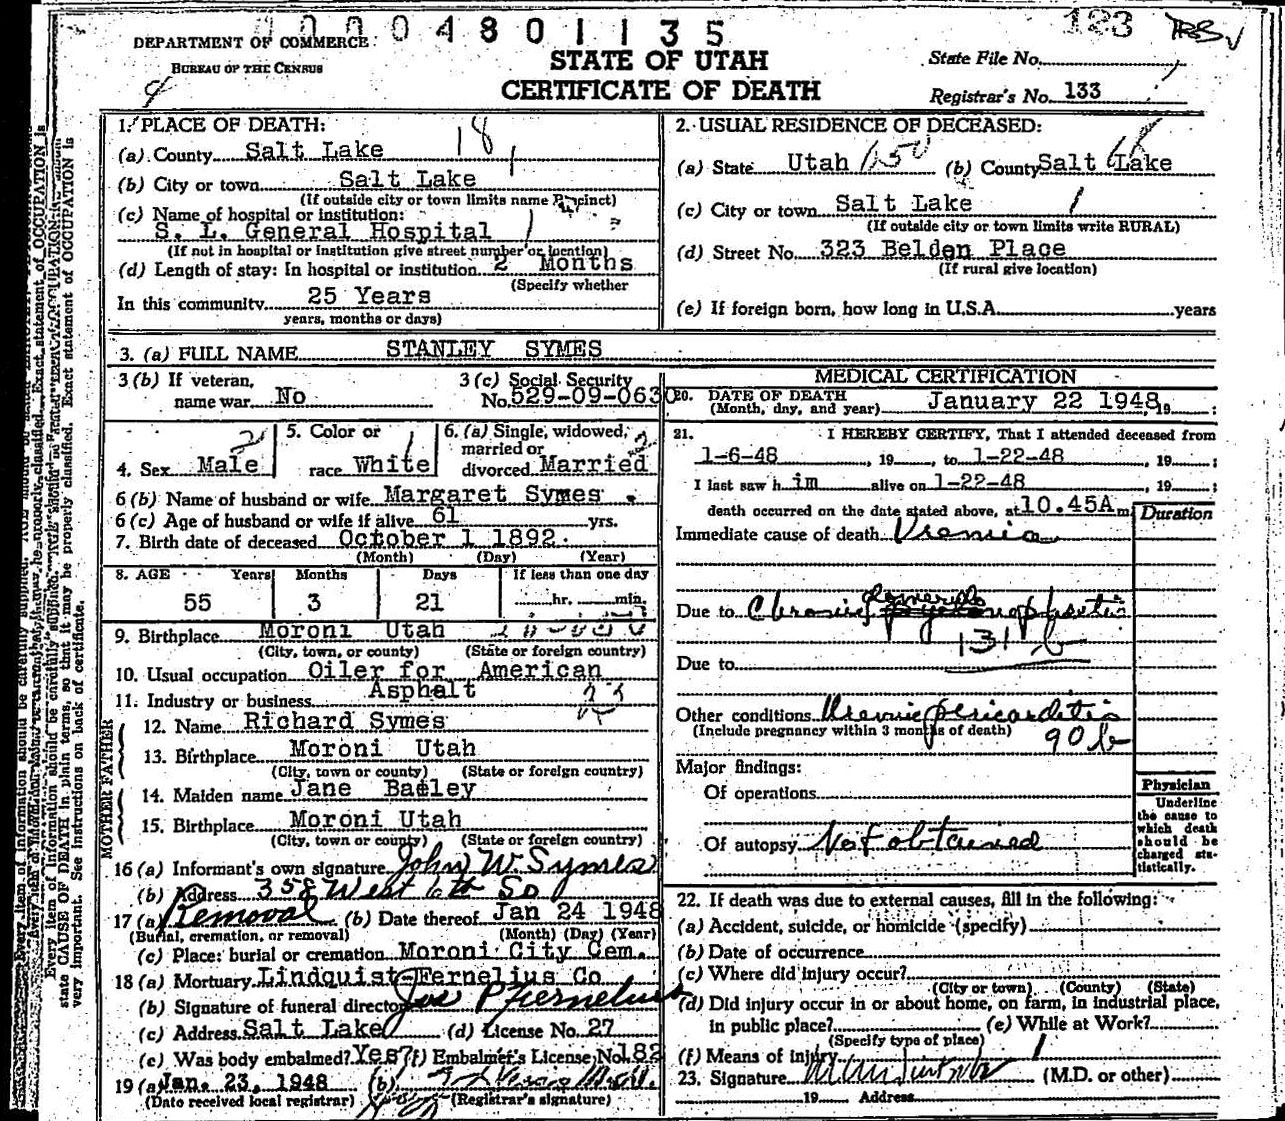 000 0 4 8 0 1 1 3 5
123
DEPARTMENT OF COMMERCE
BUREAU OF THE CENSUS
STATE OF UTAH
CERTIFICATE OF DEATH
State File No.
Registrar's No. 133
1. PLACE OF DEATH:
(a) County Salt Lake 18
(b) City or town Salt Lake 1
(If outside city or town limits name Precinct)
(c) Name of hospital or institution:
S. L. General Hospital
(If not in hospital or institution give street number or location)
(d) Length of stay: In hospital or institution 2 Months
(Specify whether
In this community 25 Years
years, months or days)
2. USUAL RESIDENCE OF DECEASED:
(a) State Utah (b) County Salt Lake
(c) City or town Salt Lake 1
(If outside city or town limits write RURAL)
(d) Street No. 323 Belden Place
(If rural give location)
(e) If foreign born, how long in U.S.A. years
3. (a) FULL NAME STANLEY SYMES
3 (b) If veteran, name war No
3 (c) Social Security No. 529-09-0630
4. Sex Male
5. Color or race White
6. (a) Single, widowed, married or divorced Married
6 (b) Name of husband or wife Margaret Symes
6 (c) Age of husband or wife if alive 61 yrs.
7. Birth date of deceased October 1 1892
(Month) (Day) (Year)
8. AGE Years Months Days If less than one day
55 3 21 hr. min.
9. Birthplace Moroni Utah
(City, town, or county) (State or foreign country)
10. Usual occupation Oiler for American
11. Industry or business Asphalt
FATHER
12. Name Richard Symes
13. Birthplace Moroni Utah
(City, town or county) (State or foreign country)
MOTHER
14. Maiden name Jane Bailey
15. Birthplace Moroni Utah
(City, town or county) (State or foreign country)
16 (a) Informant's own signature John W. Symes
(b) Address 358 West 6th So
17 (a) Removal (b) Date thereof Jan 24 1948
(Burial, cremation, or removal) (Month) (Day) (Year)
(c) Place: burial or cremation Moroni City Cem.
18 (a) Mortuary Lindquist-Fernelius Co
(b) Signature of funeral director Joe P Fernelius
(c) Address Salt Lake (d) License No. 27
(e) Was body embalmed? Yes (f) Embalmer's License No. 182
19 (a) Jan. 23, 1948 (b)
(Date received local registrar) (Registrar's signature)
MEDICAL CERTIFICATION
20. DATE OF DEATH
(Month, day, and year) January 22 1948 19 ;
21. I HEREBY CERTIFY, That I attended deceased from
1-6-48, 19 , to 1-22-48, 19 ;
I last saw h im alive on 1-22-48, 19 ;
death occurred on the date stated above, at 10.45A m.
Duration
Immediate cause of death Uremia
Due to Chronic glomerulo nephritis
131 b
Due to
Other conditions Uremic pericarditis
(Include pregnancy within 3 months of death) 90 b
Major findings:
Of operations
Of autopsy Not obtained
Physician
Underline
the cause to
which death
should be
charged sta-
tistically.
22. If death was due to external causes, fill in the following:
(a) Accident, suicide, or homicide (specify)
(b) Date of occurrence
(c) Where did injury occur?
(City or town) (County) (State)
(d) Did injury occur in or about home, on farm, in industrial place,
in public place? (e) While at Work?
(Specify type of place)
(f) Means of injury
23. Signature (M.D. or other)
19 Address
Every item of information should be carefully supplied. Exact statement of OCCUPATION is
state CAUSE OF DEATH in plain terms, so that it may be properly classified.
very important. See instructions on back of certificate.